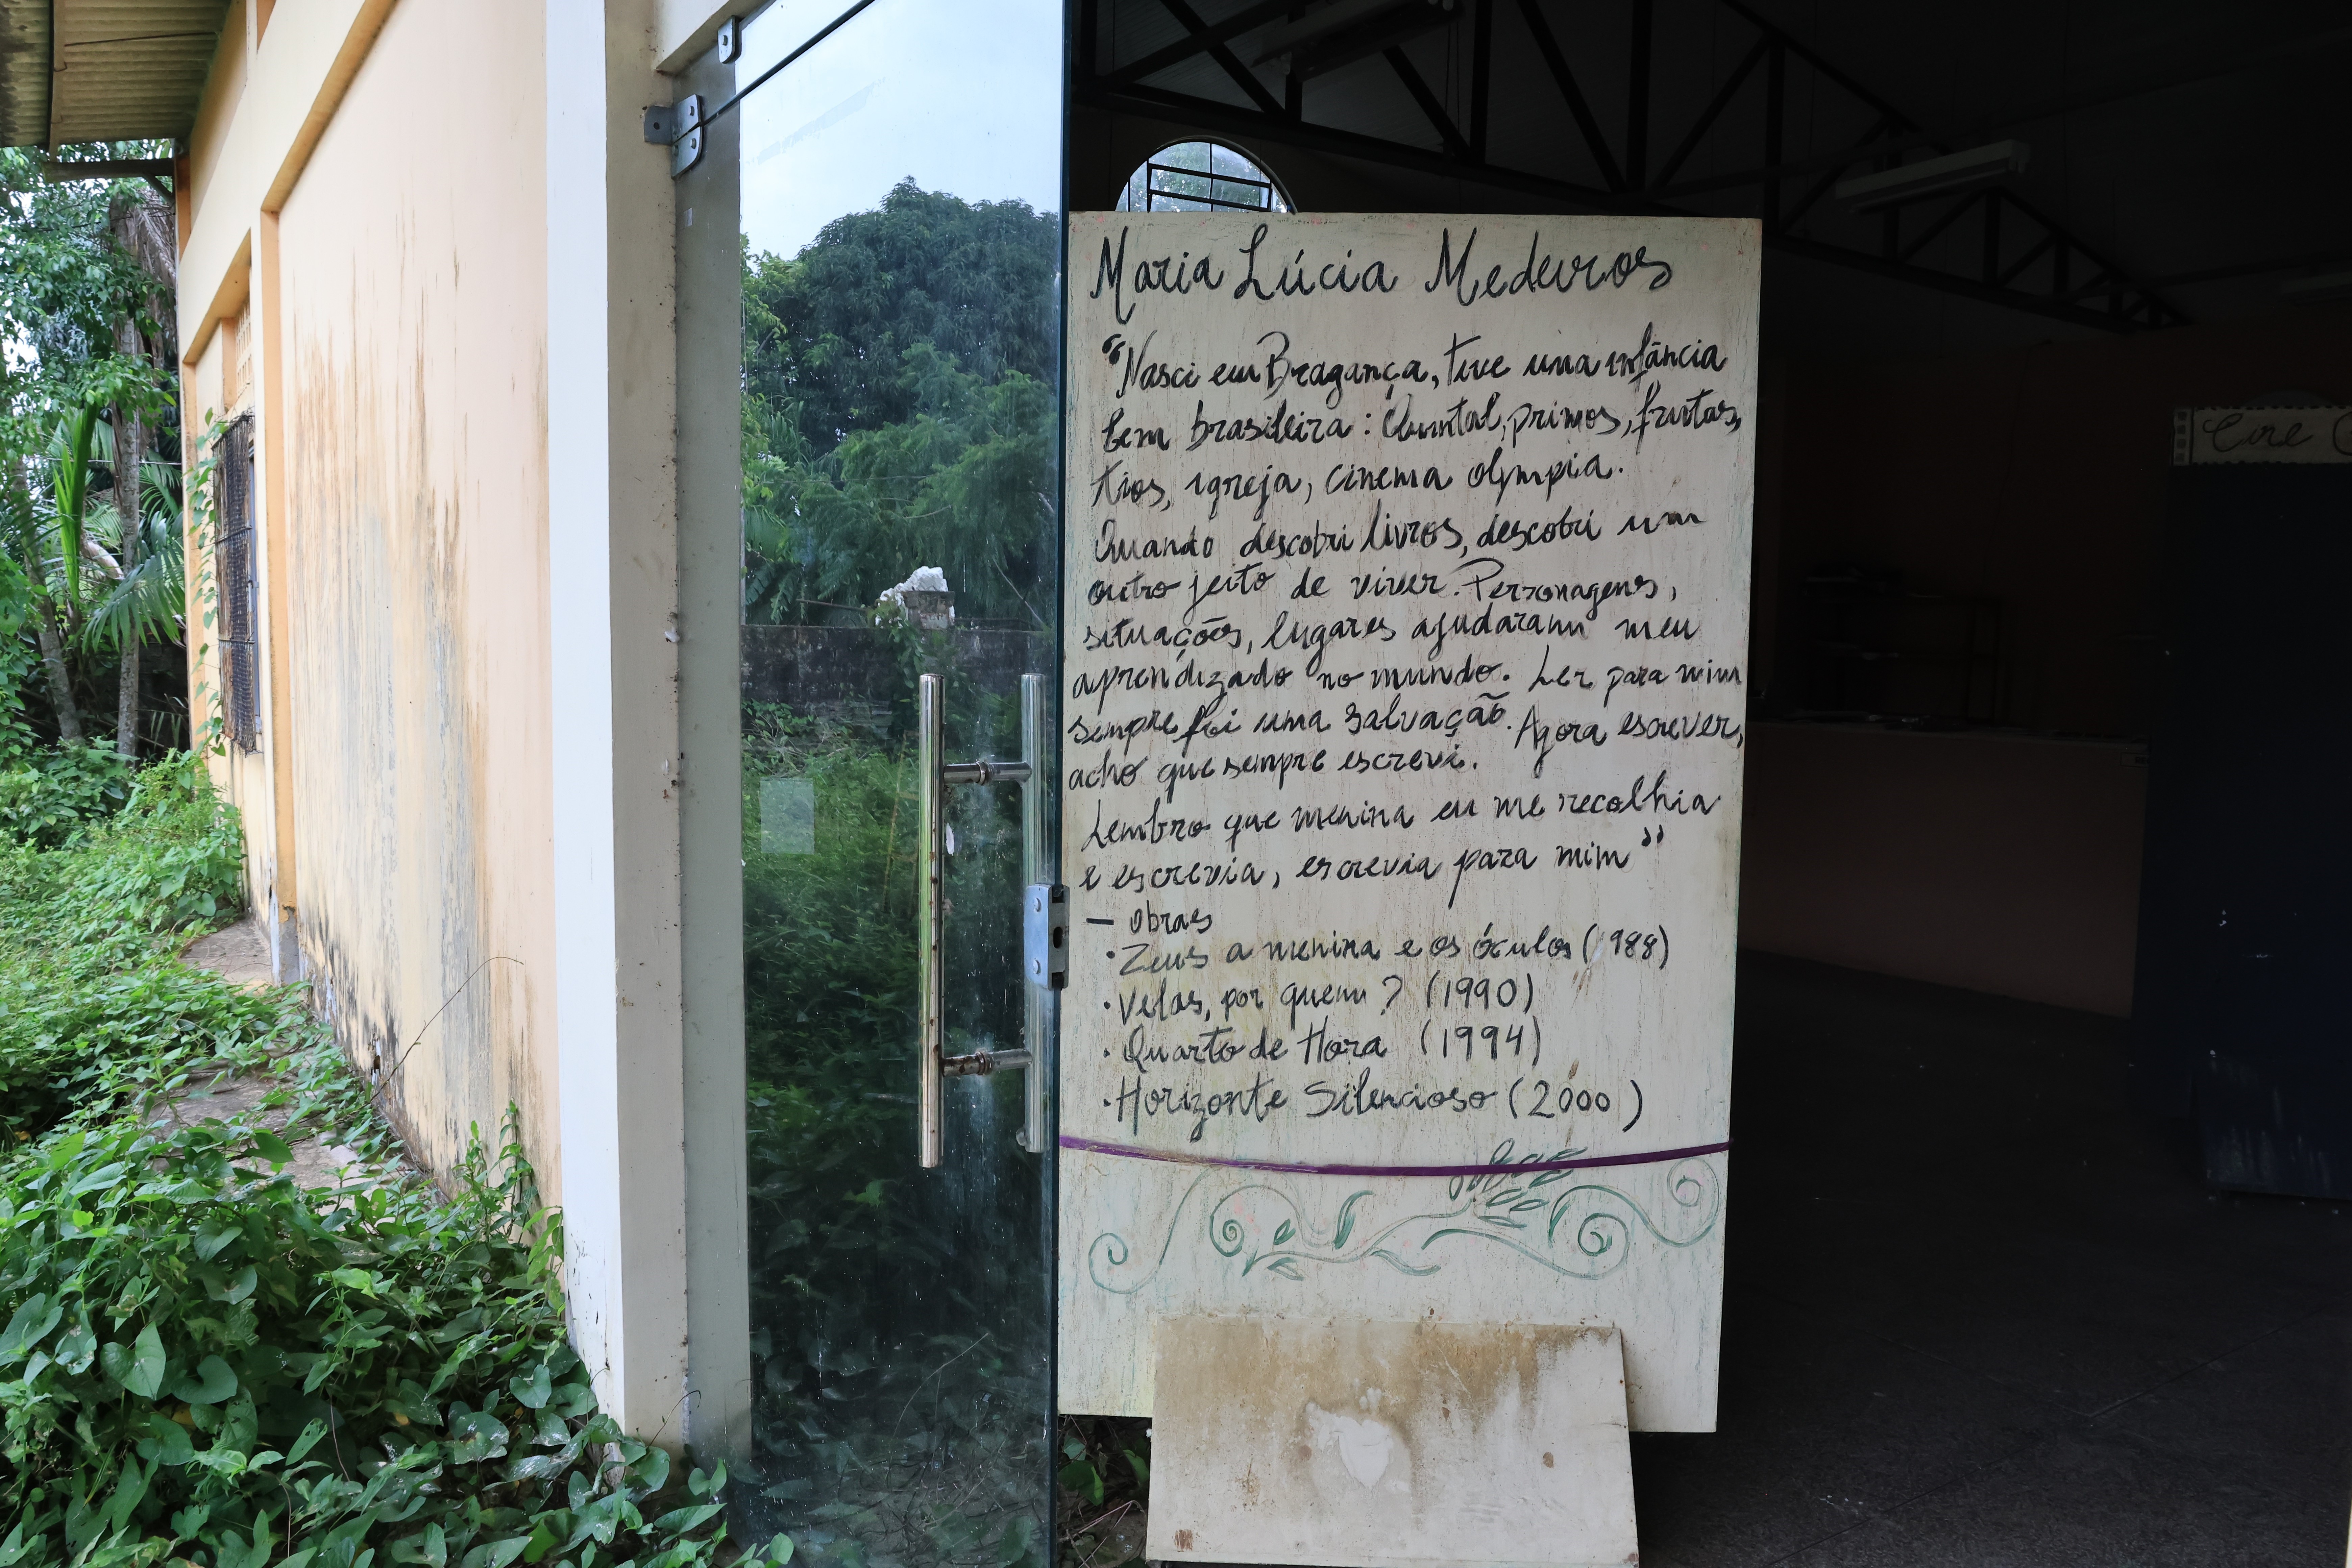 Maria Lúcia Medeiros
"Nasci em Bragança, tive uma infância
bem brasileira: Quintal, primos, frutas,
tios, igreja, cinema olympia.
Quando descobri livros, descobri um
outro jeito de viver. Personagens,
situações, lugares ajudaram meu
aprendizado no mundo. Ler para mim
sempre foi uma salvação. Agora escrever,
acho que sempre escrevi.
Lembro que menina eu me recolhia
e escrevia, escrevia para mim"
— obras
• Zeus a menina e os óculos (1988)
• Velas, por quem? (1990)
• Quarto de Hora (1994)
• Horizonte Silencioso (2000)
Cine